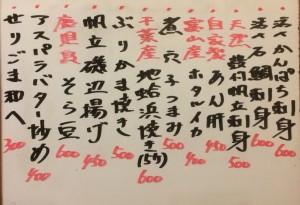 活〆かんぱち刺身 600
活〆石鯛刺身 600
天然 殻付帆立刺身 500
自家製 あん肝
富山産 ホタルイカ
煮穴子つまみ 500
千葉産 地蛤浜焼き(5ケ) 600
ぶりかま焼き 500
帆立磯辺揚げ 450
鹿児島 そら豆 600
アスパラバター炒め 400
せりごま和へ 300